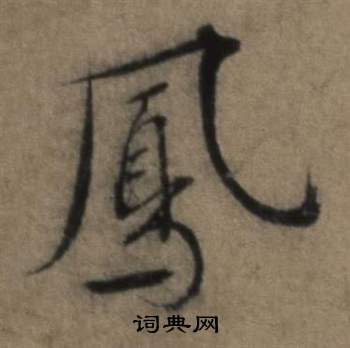 鳳
词典网